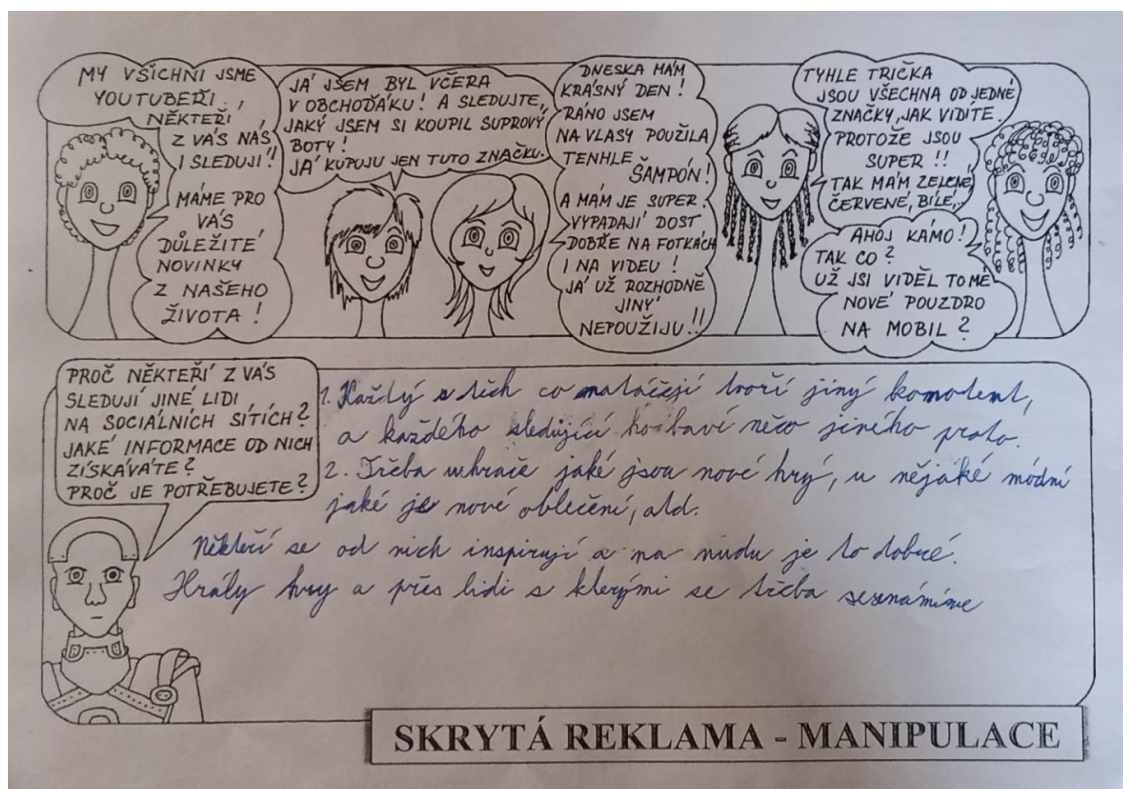 MY VŠICHNI JSME
YOUTUBEŘI,
NĚKTEŘÍ
Z VÁS NÁS
I SLEDUJÍ!!
MÁME PRO
VÁS
DŮLEŽITÉ
NOVINKY
Z NAŠEHO
ŽIVOTA!
JÁ JSEM BYL VČERA
V OBCHOĎÁKU! A SLEDUJTE,
JAKÝ JSEM SI KOUPIL SUPROVÝ
BOTY!
JÁ KUPUJU JEN TUTO ZNAČKU.
DNESKA MÁM
KRÁSNÝ DEN!
RÁNO JSEM
NA VLASY POUŽILA
TENHLE
ŠAMPÓN!
A MÁM JE SUPER!
VYPADAJÍ DOST
DOBŘE NA FOTKÁCH
I NA VIDEU!
JÁ UŽ ROZHODNĚ
JINÝ
NEPOUŽIJU!!
TYHLE TRIČKA
JSOU VŠECHNA OD JEDNÉ
ZNAČKY, JAK VIDÍTE.
PROTOŽE JSOU
SUPER!!
TAK MÁM ZELENÉ,
ČERVENÉ, BÍLÉ,..
AHOJ KÁMO!
TAK CO?
UŽ JSI VIDĚL TO MÉ
NOVÉ POUZDRO
NA MOBIL?
PROČ NĚKTEŘÍ Z VÁS
SLEDUJÍ JINÉ LIDI
NA SOCIÁLNÍCH SÍTÍCH?
JAKÉ INFORMACE OD NICH
ZÍSKÁVÁTE?
PROČ JE POTŘEBUJETE?
1. Každý s těch co natáčějí tvoří jiný komotent,
a každého sledující ho baví něco jiného proto.
2. Třeba u hráče jaké jsou nové hrý, u nějaké módní
jaké je nové oblečení, atd.
Někteří se od nich inspirují a na nudu je to dobré.
Hrály hry a přes lidi s kterými se třeba seznámíme
SKRYTÁ REKLAMA - MANIPULACE